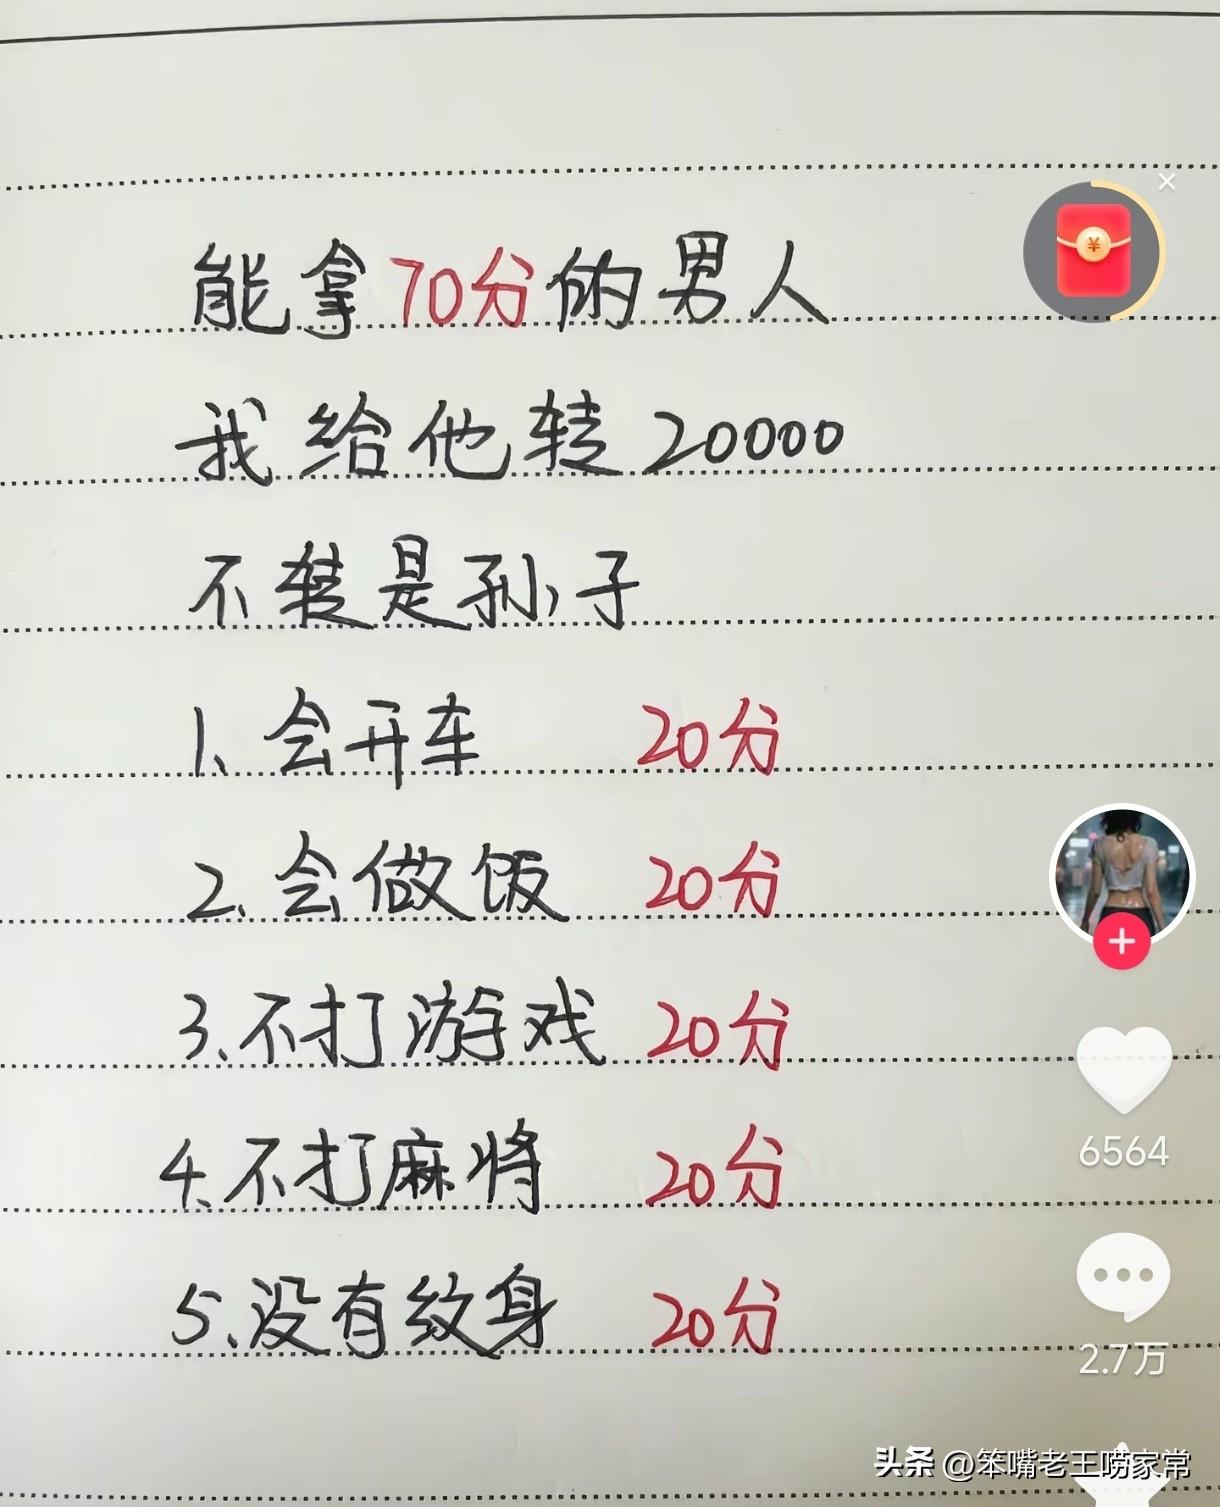 能拿70分的男人
我给他转20000
不转是孙子
1、会开车 20分
2、会做饭 20分
3、不打游戏 20分
4、不打麻将 20分
5、没有纹身 20分
6564
2.7万
头条 @笨嘴老王唠家常